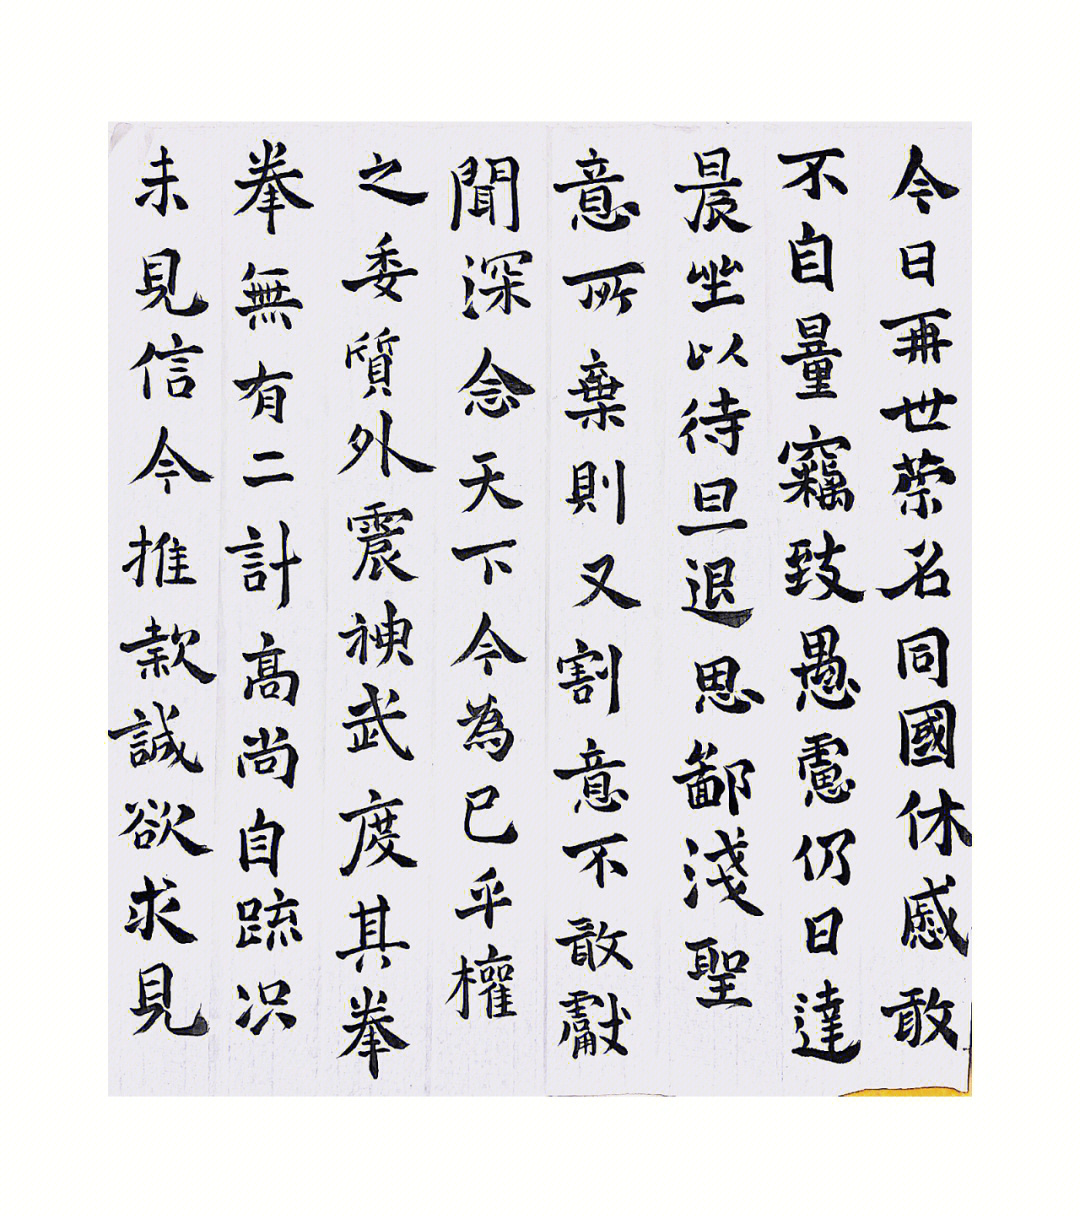 今日再世荣名同國休慼敢
不自量竊致愚慮仍日達
晨坐以待旦退思鄙淺聖
意所棄則又割意不敢獻
聞深念天下今為已平權
之委質外震神武度其拳
拳無有二計高尚自疏况
未見信今推款誠欲求見